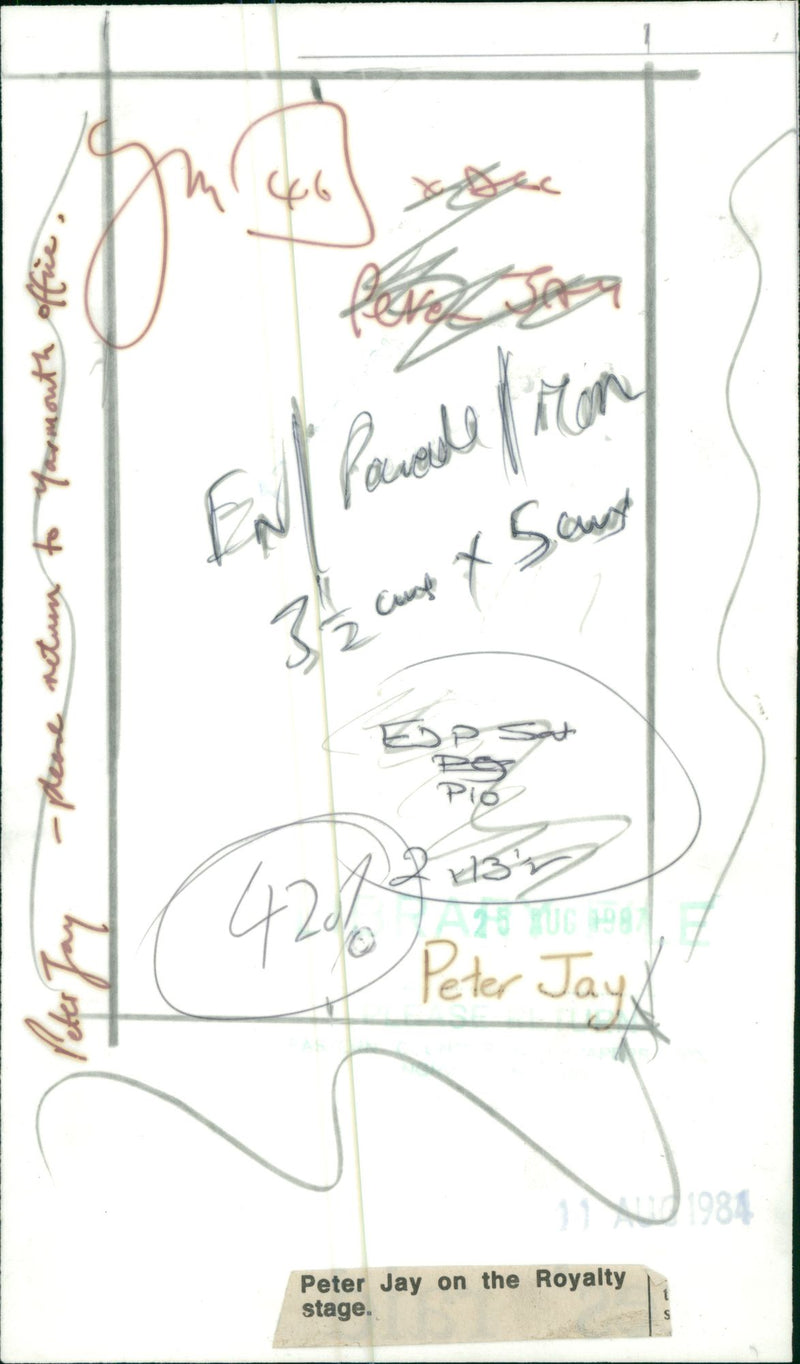 Peter Jay - please return to Yarmouth office.
46
Peter Jay
EN / Parade / Mon
3 1/2 cms x 5 cms
EDP Sat
P10
42%
LIBRARY
28 AUG 1987
Peter Jay
PLEASE RETURN
11 AUG 1984
Peter Jay on the Royalty
stage.